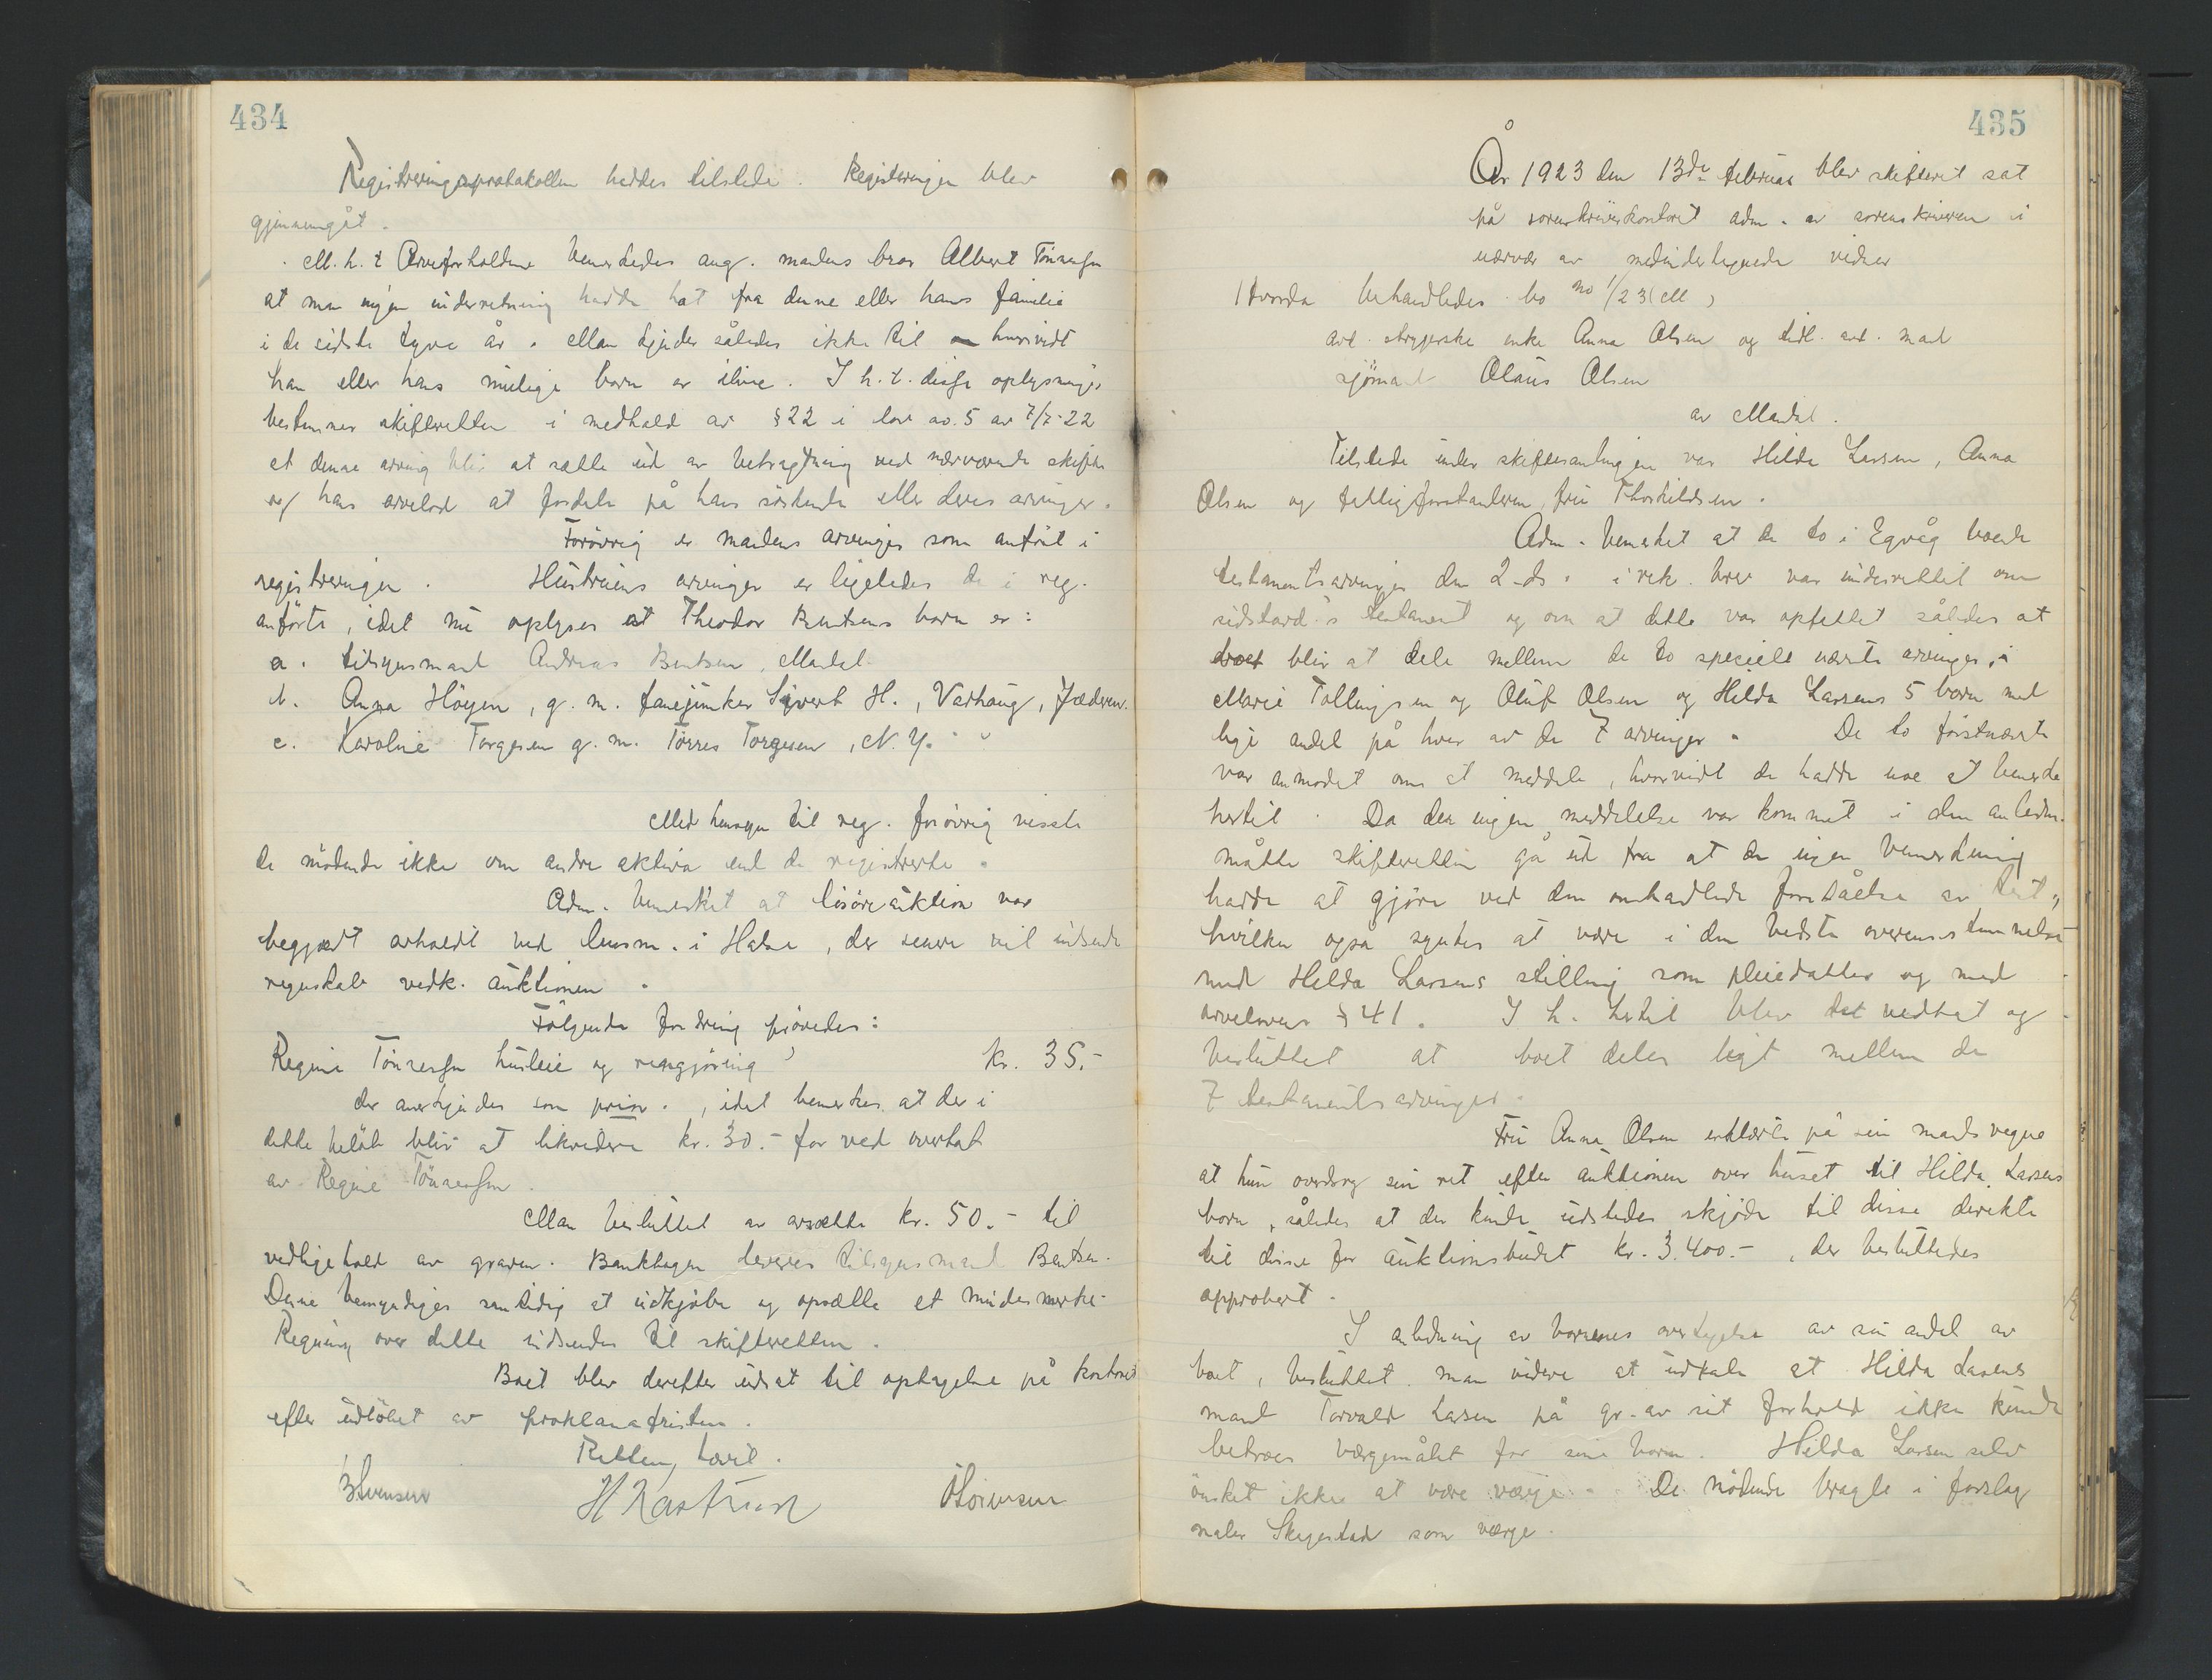 434
Registreringsprotokollen haddes tilstede. Registeringen blev
gjennemgåt.
M. h. t Arveforholdene bemerkedes ang. mandens bror Albert Tönnessen
at man ingen underretning hadde hat fra denne eller hans familie
i de sidste tyve år. Man kjender således ikke til hvorvidt
han eller hans mulige barn er ilive. I h. t. disse oplysninger
bestemmer skifteretten i medhald av § 22 i lov no. 5 av 7/7-22
at denne arving blir at sætte ud av betragtning ved nærværende skifte
og hans arvelod at fordele på hans söskende eller deres arvinger.
Forövrig er mandens arvinger som anfört i
registreringen. Hustruens arvinger er ligeledes de i reg.
anförte, idet nu oplyses at Theodor Bentsens barn er:
a. tilsynsmand Andreas Bentsen, Mandal.
b. Anna Höyen, g. m. fanejunker Sivert H., Varhaug, Jæderen.
c. Karoline Torgesen g. m. Törres Torgesen, N. Y.
Med hensyn til reg. forövrig visste
de mödende ikke om andre aktiva end de registrerte.
Adm. bemerket at lösöreauktion var
begjært avholdt ved lensm. i Halse, der senere vil indsende
regnskab vedk. auktionen.
Fölgende fordring prövedes:
Regine Tönnessen husleie og rengjöring kr. 35.-
der anerkjendes som prior., idet bemerkes at der i
dette belöb blir at likvidere kr. 30.- for ved overtat
av Regine Tönnessen.
Man besluttet av avsætte kr. 50.- til
vedligehold av graven. Bankbogen leveres tilsynsmand Bentsen.
Denne bemyndiges samtidig at indkjöbe og opsætte et mindesmerke.
Regning over dette indsendes til skifteretten.
Boet blev derefter udsat til optagelse på kontoret
efter udlöbet av proklamafristen.
Retten hævet.
BSvensen H Kastrup OSörensen
435
År 1923 den 13de februar blev skifteret sat
på sorenskriverkontoret adm. av sorenskriveren i
nærvær av medundertegnede vidner
Hvorda behandledes bo no 1/23 (M)
avd. strygerske enke Anna Olsen og tidl. avd. mand
sjömand Olaus Olsen
av Mandal.
Tilstede under skiftesamlingen var Hilda Larsen, Anna
Olsen og fattigforstanderen, fru Thorkildsen.
Adm. bemerket at de to i Egvåg boende
testamentsarvinger den 2-ds. i rek. brev var underrettet om
sidstavd.'s testament og om at dette var opfattet således at
boet blir at dele mellem de to specielt nævnte arvinger,
Marie Tallingsen og Oluf Olsen og Hilda Larsens 5 barn med
lige andel på hver av de 7 arvinger. De to förstnævnte
var anmodet om at meddele, hvorvidt de hadde noe at bemerke
hertil. Da der ingen meddelelse var kommet i den anledn.
måtte skifteretten gå ud fra at de ingen bemerkning
hadde at gjöre ved den omhandlede forståelse av test.,
hvilken også syntes at være i den bedste overensstemmelse
med Hilda Larsens stilling som pleiedatter og med
arvelovens § 41. I h. hertil blev det vedtat og
besluttet at boet deles ligt mellem de
7 testamentsarvinger.
Fru Anna Olsen erklærte på sin mands vegne
at hun overdrog sin ret efter auktionen over huset til Hilda Larsens
barn, således at der kunde udstedes skjöde til disse direkte
til disse for auktionsbudet kr. 3.400.-, der besluttedes
approbert.
I anledning av barnenes overtagelse av sin andel av
boet, besluttet man videre at udtale at Hilda Larsens
mand Torvald Larsen på gr. av sit forhold ikke kunde
betroes værgemålet for sine barn. Hilda Larsen selv
önsket ikke at være værge. De mödende bragte i forslag
maler Skejestad som værge.